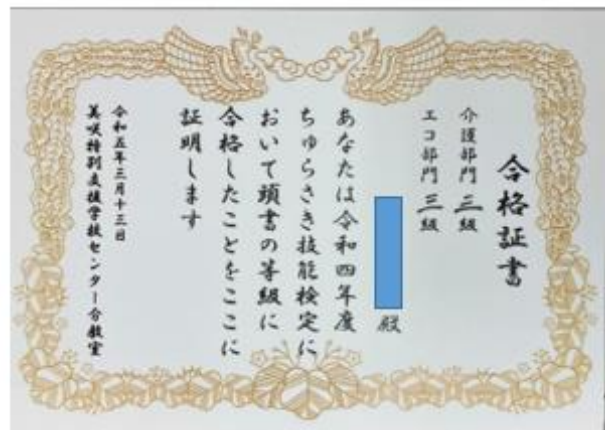 合格証書
介護部門 三級
エコ部門 三級
殿
あなたは令和四年度
ちゅらさき技能検定に
おいて頭書の等級に
合格したことをここに
証明します
令和五年三月十三日
美咲特別支援学校センター分教室